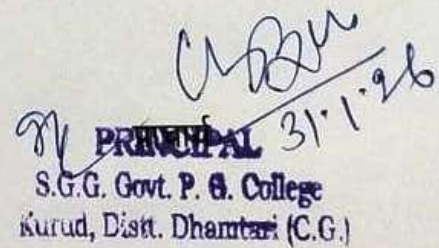 31.1.26
PRINCIPAL
S.G.G. Govt. P. G. College
Kurud, Distt. Dhamtari (C.G.)